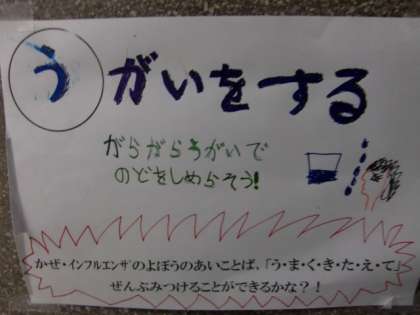 うがいをする
がらがらうがいで
のどをしめらそう!
かぜ・インフルエンザのよぼうのあいことば、「う・ま・く・き・た・え・て」
ぜんぶみつけることができるかな?!